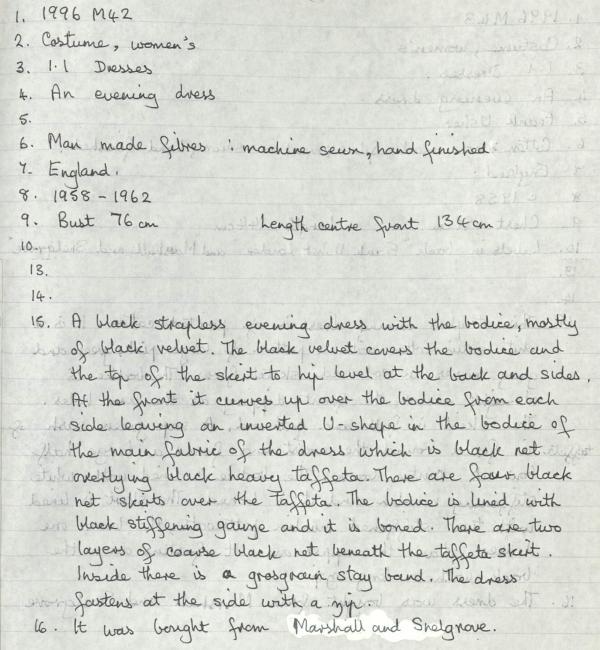 1. 1996 M42
2. Costume, women's
3. 1.1 Dresses
4. An evening dress
5.
6. Man made fibres : machine sewn, hand finished
7. England.
8. 1958 - 1962
9. Bust 76 cm Length centre front 134 cm
10.
13.
14.
15. A black strapless evening dress with the bodice, mostly
of black velvet. The black velvet covers the bodice and
the top of the skirt to hip level at the back and sides.
At the front it curves up over the bodice from each
side leaving an inverted U-shape in the bodice of
the main fabric of the dress which is black net
overlying black heavy taffeta. There are four black
net skirts over the taffeta. The bodice is lined with
black stiffening gauze and it is boned. There are two
layers of coarse black net beneath the taffeta skirt.
Inside there is a grosgrain stay band. The dress
fastens at the side with a zip.
16. It was bought from Marshall and Snelgrove.